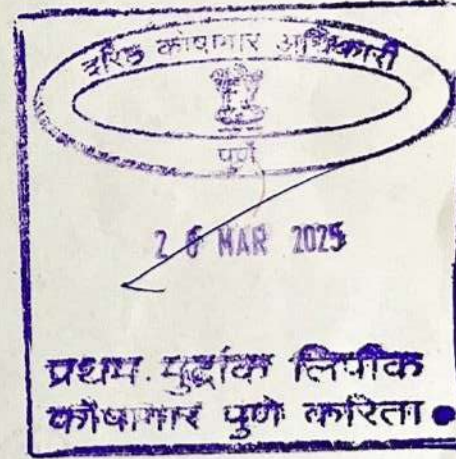 वरिष्ठ कोषागार अधिकारी
पुणे
2 6 MAR 2025
प्रथम मुद्रांक लिपीक
कोषागार पुणे करिता